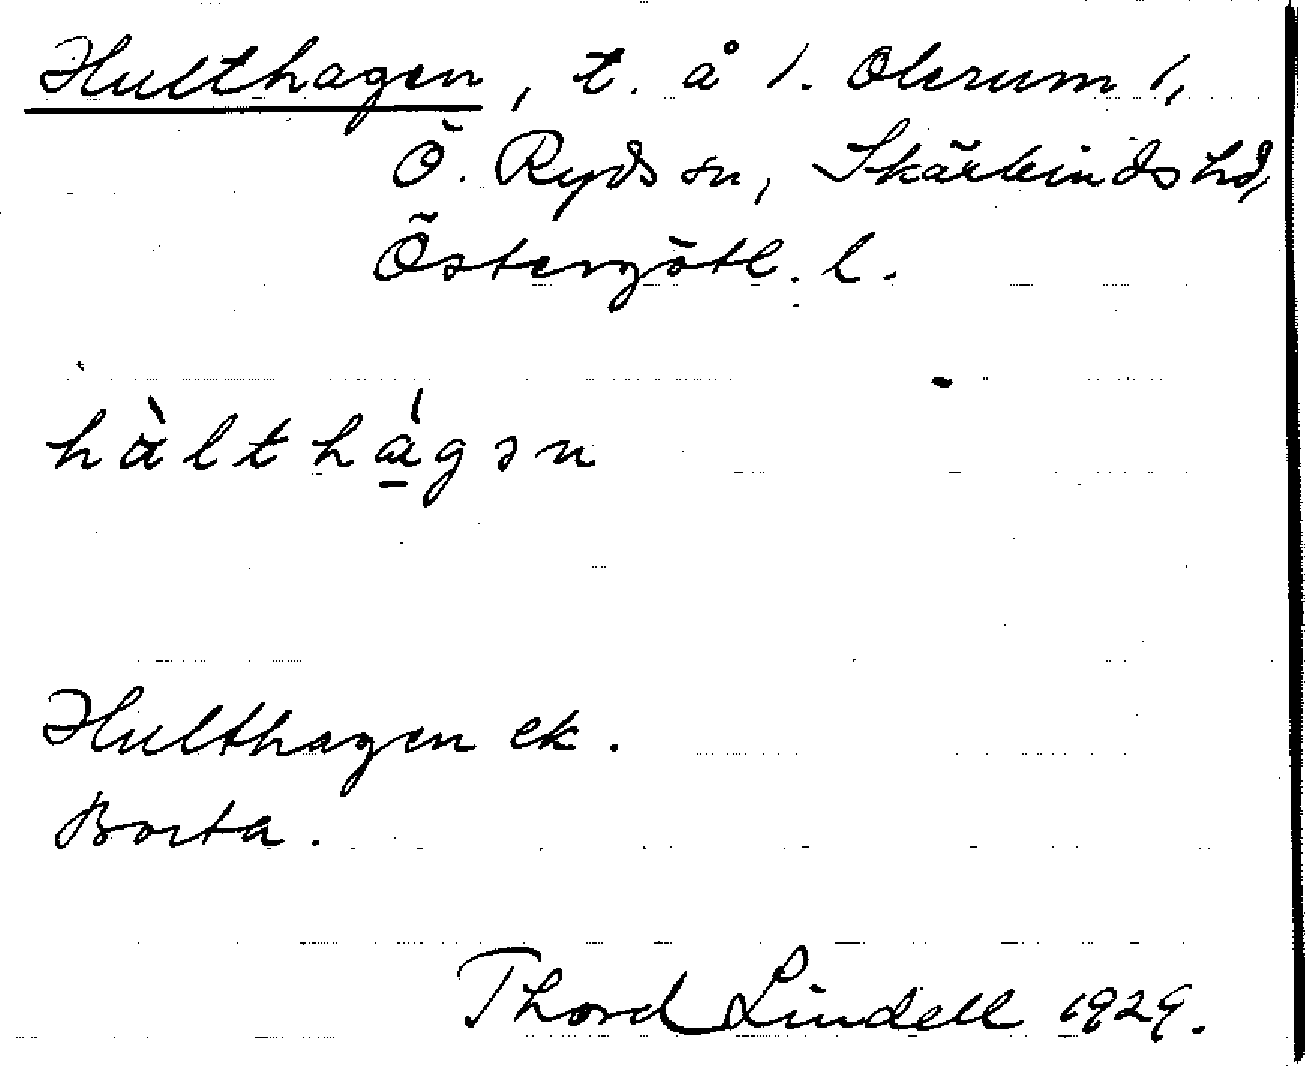 Hulthagen, t. å l. Olerum 1,
Ö. Ryds sn, Skärkinds hd,
Östergötl. l.
hàlthágən
Hulthagen ek.
Borta.
Thord Lindell 1929.